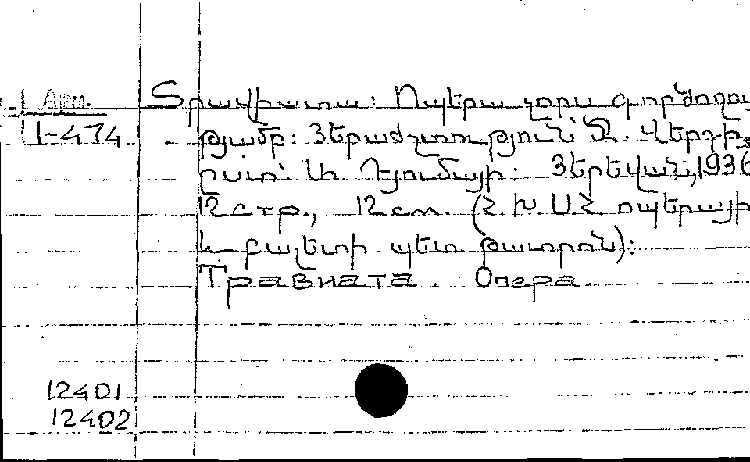 Арт.
I-474
Տրավիատա: Ոպերա չորս գործողու
թյամբ: Յերաժշտություն՝ Ջ. Վերդի,
ըստ՝ Ա. Դյումայի: Յերեվան, 1936
12 стр., 12 см. (Հ.Խ.Ս.Հ ոպերայի
և բալետի պետ թատրոն):
Травиата. Опера.
12401
12402